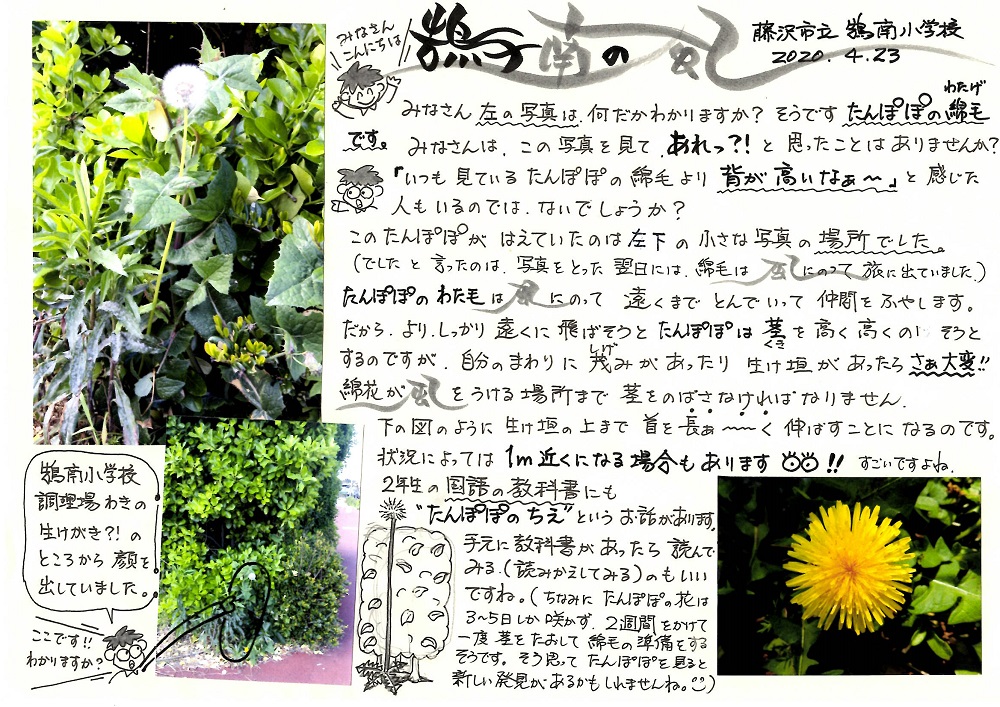 みなさん
こんにちは
鵠南の風
藤沢市立 鵠南小学校
2020.4.23
みなさん 左の写真は、何だかわかりますか? そうです たんぽぽの綿毛
わたげ
です。 みなさんは、この写真を見て、あれっ?! と思ったことはありませんか?
「いつも見ているたんぽぽの綿毛より 背が高いなぁ〜」と感じた
人もいるのでは、ないでしょうか?
このたんぽぽが はえていたのは左下の小さな写真の場所でした。
(でしたと言ったのは、写真をとった翌日には、綿毛は風にのって旅に出ていました。)
たんぽぽのわた毛は風にのって 遠くまでとんでいって仲間をふやします。
だから、より、しっかり遠くに飛ばそうとたんぽぽは茎を高く高くのばそうと
くき
するのですが、自分のまわりに茂みがあったり 生け垣があったらさぁ大変!!
しげ
綿花が風をうける場所まで茎をのばさなければなりません。
下の図のように生け垣の上まで首を長ぁ〜〜く伸ばすことになるのです。
状況によっては1m近くになる場合もあります!! すごいですよね。
2年生の国語の教科書にも
"たんぽぽのちえ"というお話があります。
手元に教科書があったら読んで
みる。(読みかえしてみる)のもいい
ですね。(ちなみにたんぽぽの花は
3〜5日しか咲かず、2週間をかけて
一度茎をたおして綿毛の準備をする
そうです。そう思ってたんぽぽを見ると
新しい発見があるかもしれませんね。)
鵠南小学校
調理場わきの
生けがき?!の
ところから顔を
出していました。
ここです!!
わかりますか?